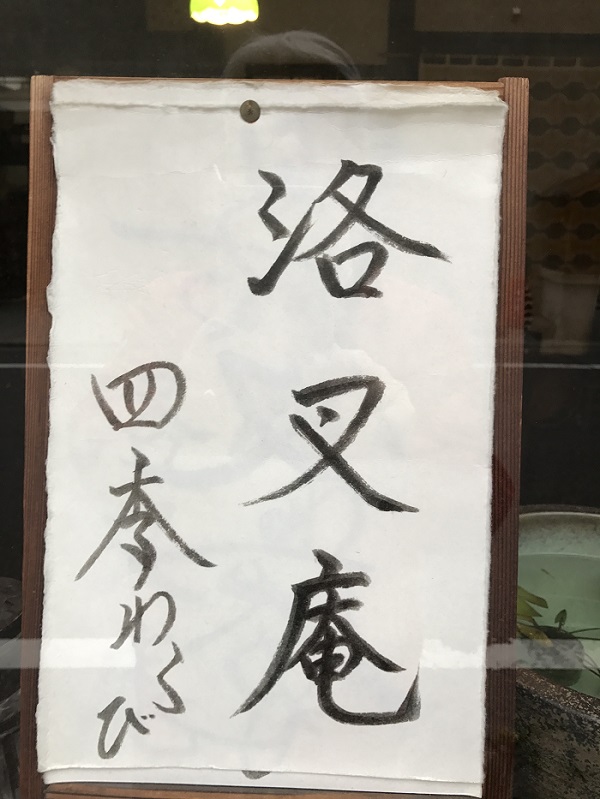 洛叉庵
四季わらび